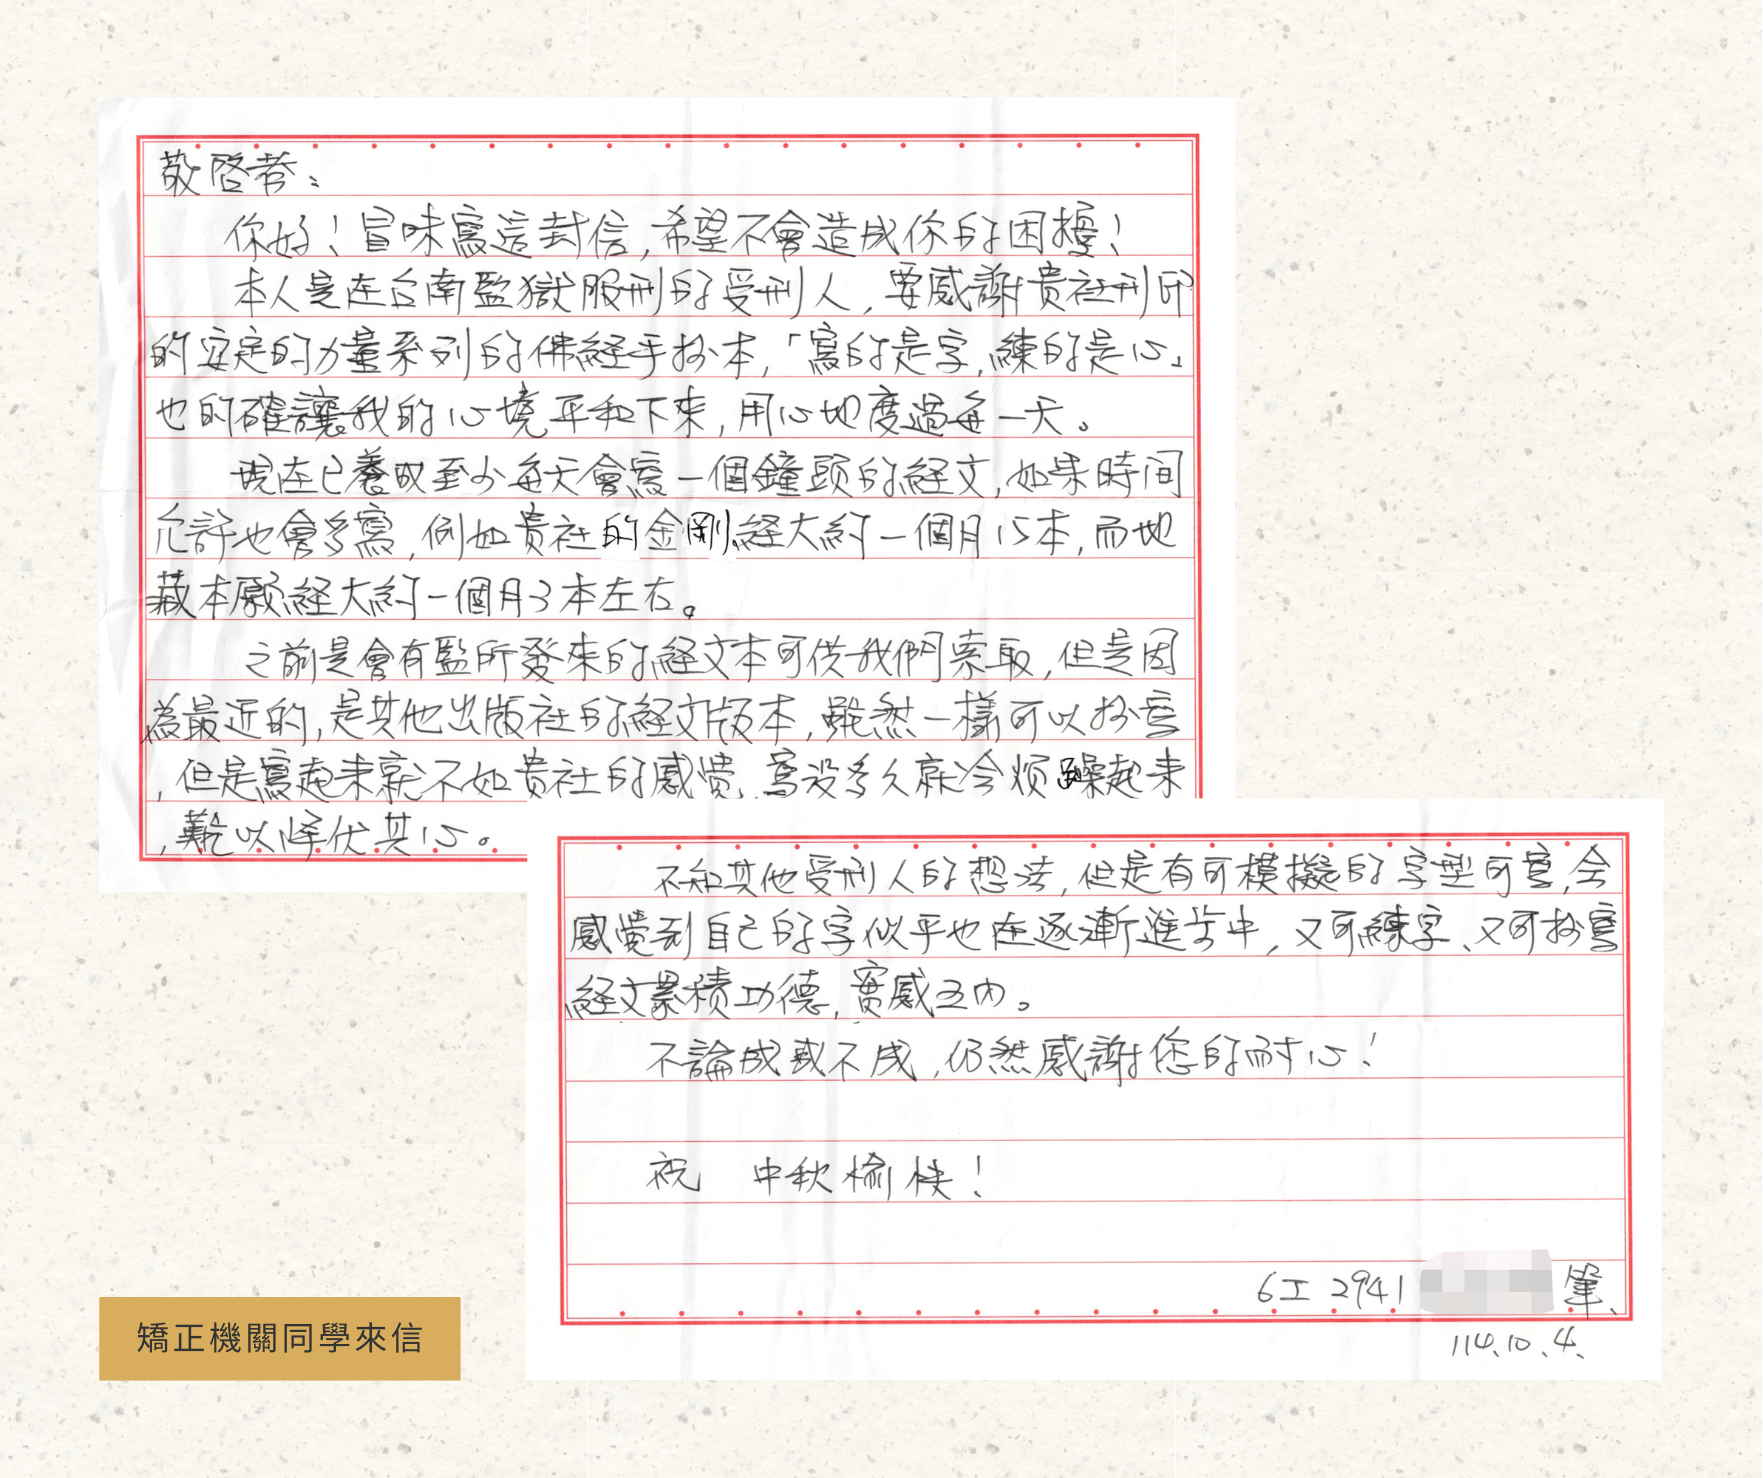 敬啓者：
你好！冒昧寫這封信，希望不會造成你的困擾！
本人是在台南監獄服刑的受刑人，要感謝貴社刊印
的安定的力量系列的佛經手抄本，「寫的是字，練的是心」
也的確讓我的心境平和下來，用心地度過每一天。
現在已養成至少每天會寫一個鐘頭的經文，如果時間
允許也會多寫，例如貴社的金剛經大約一個月15本，而地
藏本願經大約一個月3本左右。
之前是會有監所發來的經文本可供我們索取，但是因
為最近的，是其他出版社的經文版本，雖然一樣可以抄寫
，但是寫起來就不如貴社的感覺，寫沒多久就会煩躁起來
，難以降伏其心。
不知其他受刑人的想法，但是有可模擬的字型可寫，会
感覺到自己的字似乎也在逐漸進步中，又可練字、又可抄寫
經文累積功德，實感五內。
不論成或不成，仍然感謝您的耐心！
祝 中秋愉快！
6工 2941 筆、
114.10.4.
矯正機關同學來信